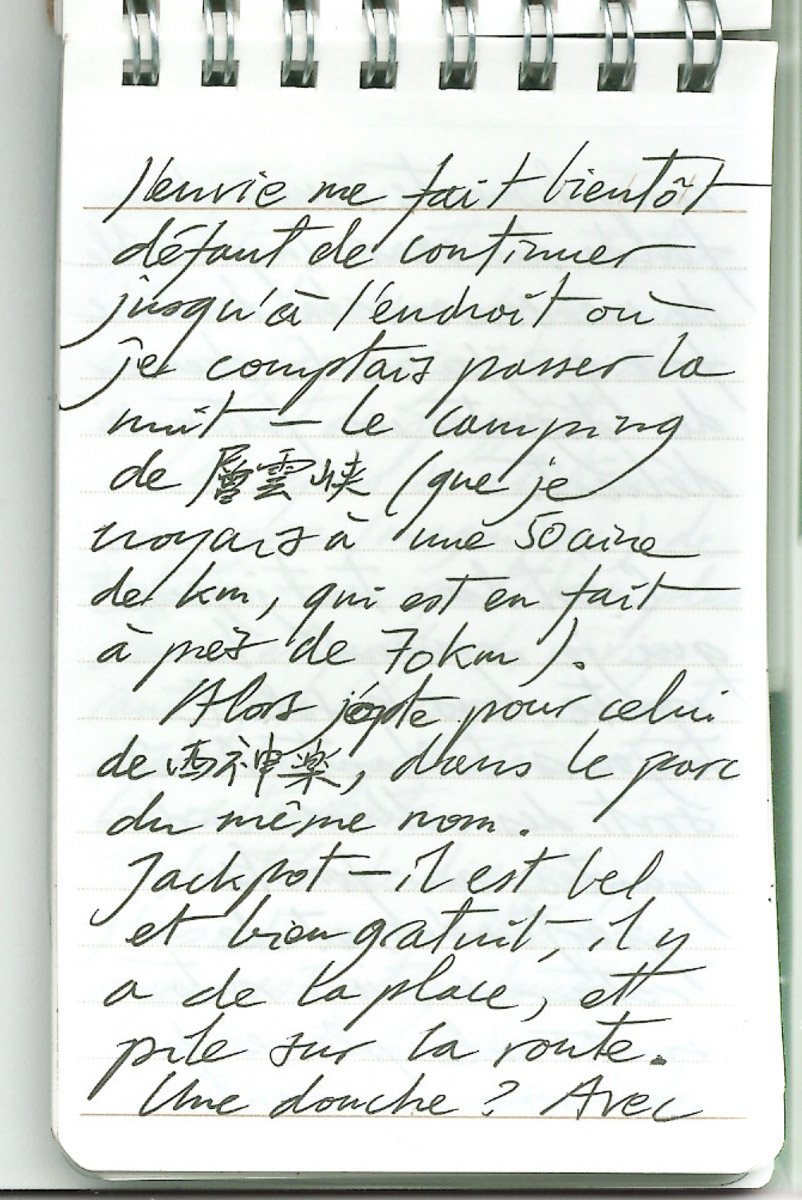 L'envie me fait bientôt
défaut de continuer
jusqu'à l'endroit où
je comptais passer la
nuit — le camping
de 層雲峡 (que je
voyais à une 50aine
de km, qui est en fait
à près de 70km).
Alors j'opte pour celui
de 西神楽, dans le parc
du même nom.
Jackpot — il est bel
et bien gratuit, il y
a de la place, et
pile sur la route.
Une douche ? Avec